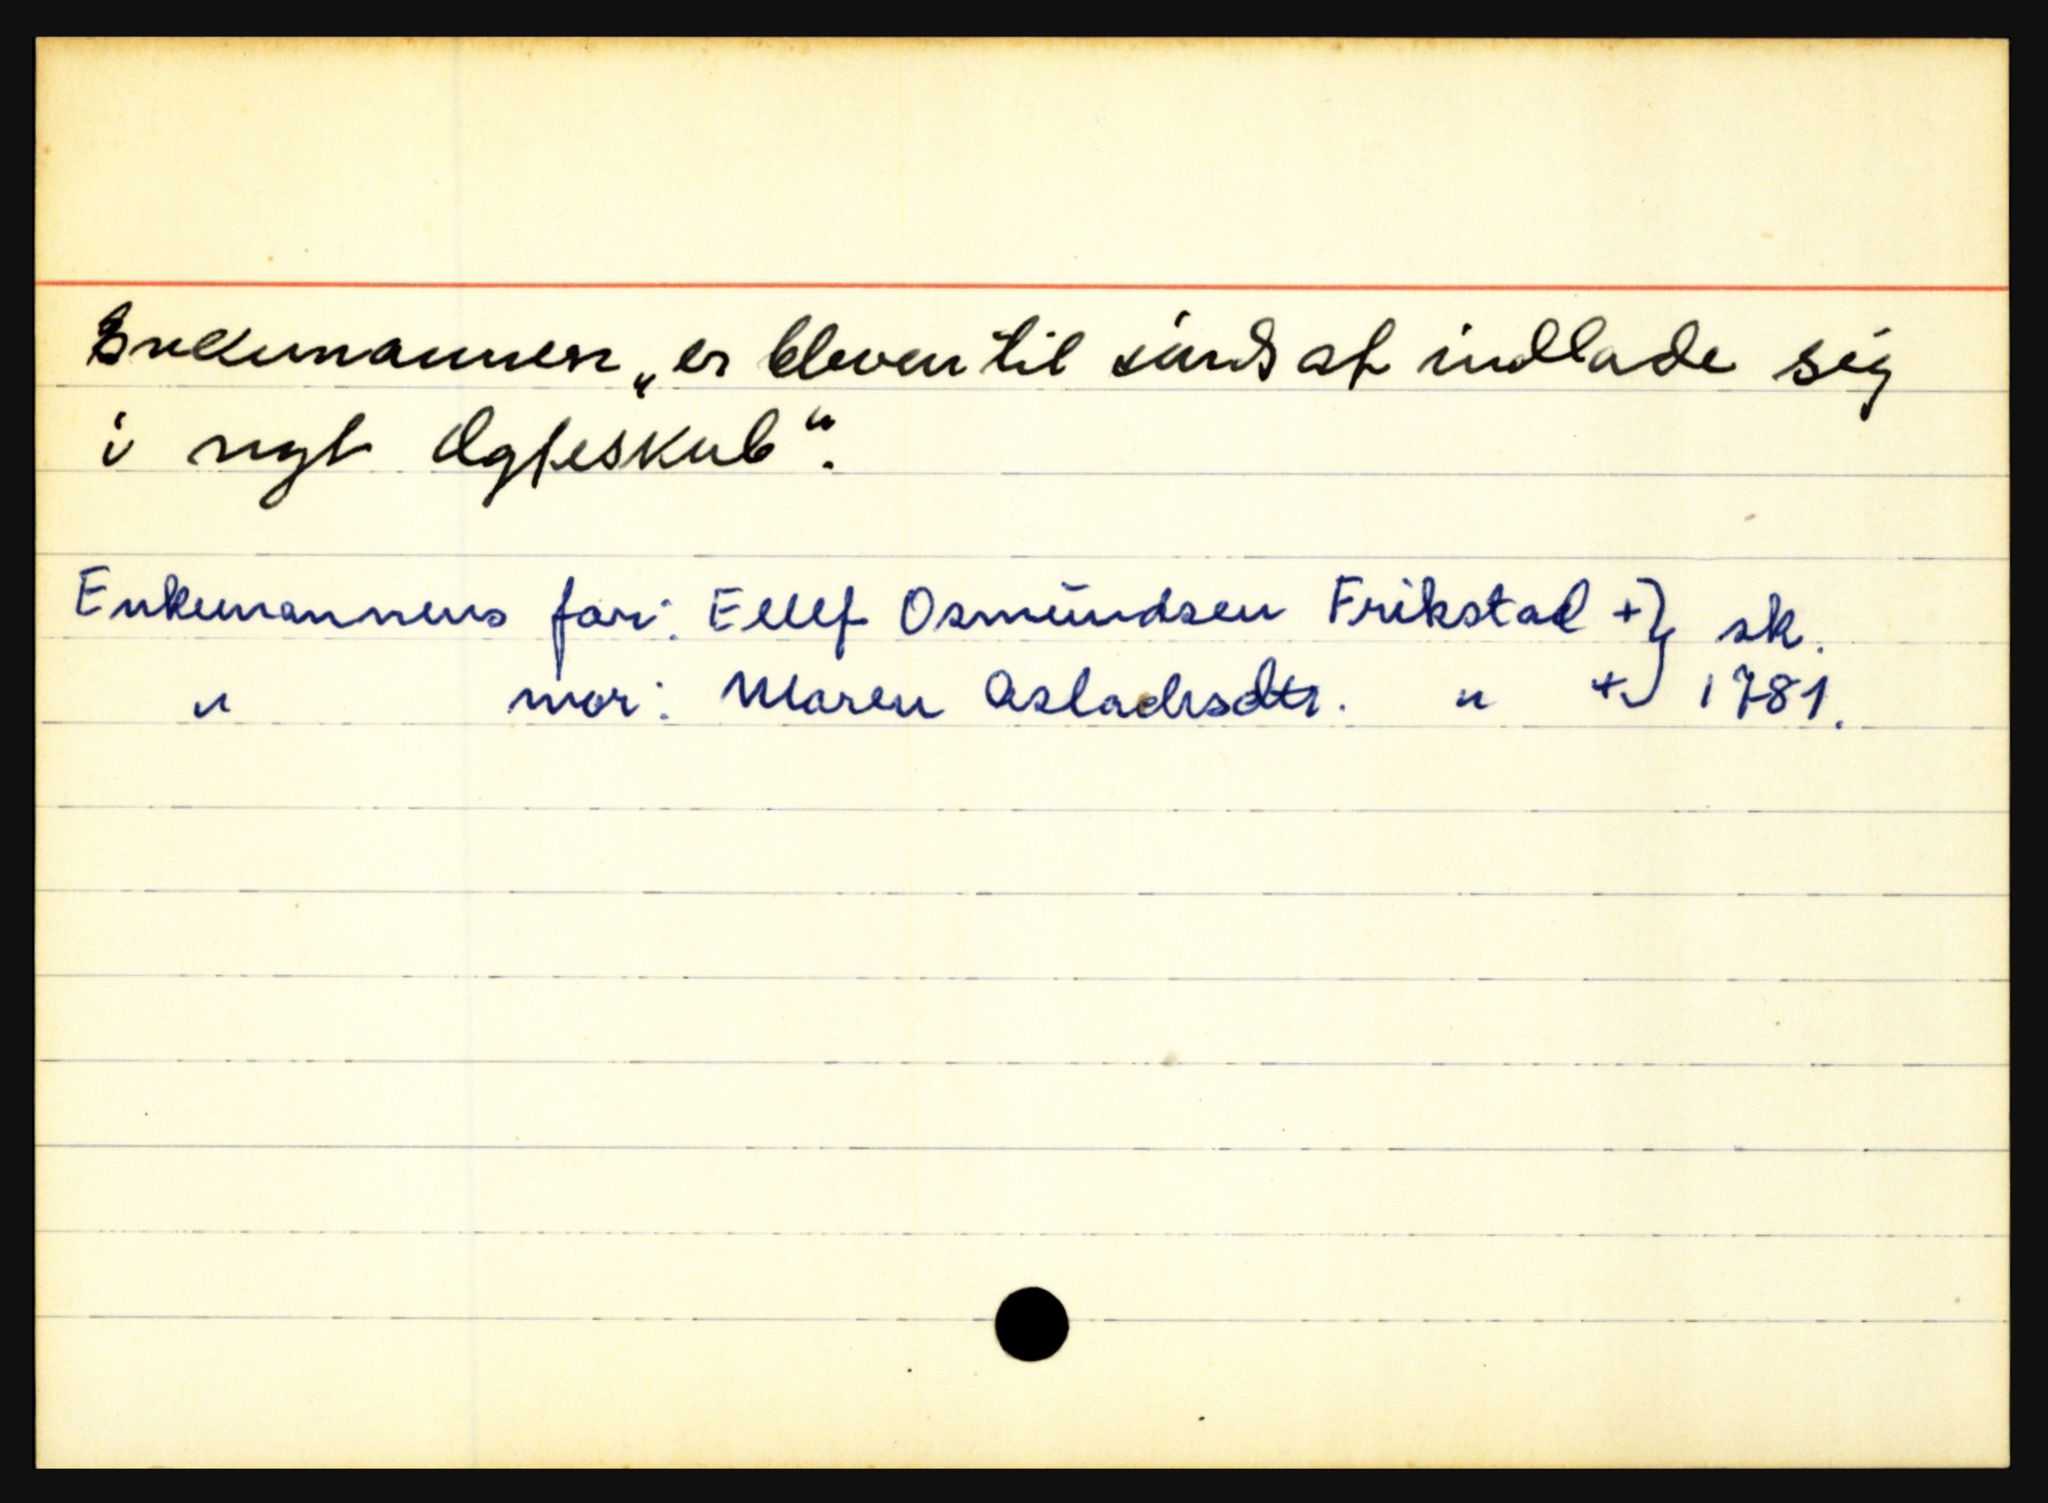 Enkemannen „er bleven til sinds at indlade sig
i nyt Ægteskab“.
Enkemannens far: Ellef Osmundsen Frikstad + } sk.
" mor: Maren Asladsdtr. " + } 1781.